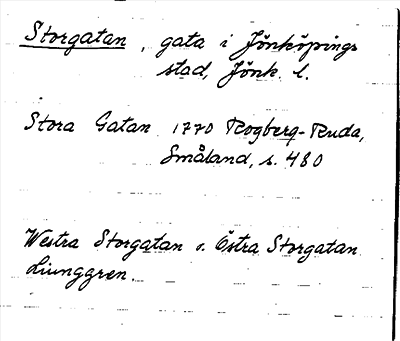 Storgatan, gata i Jönköpings
stad, Jönk. l.
Stora Gatan 1770 Rogberg-Ruda,
Småland, s. 480
Westra Storgatan o. Östra Storgatan
Liunggren.